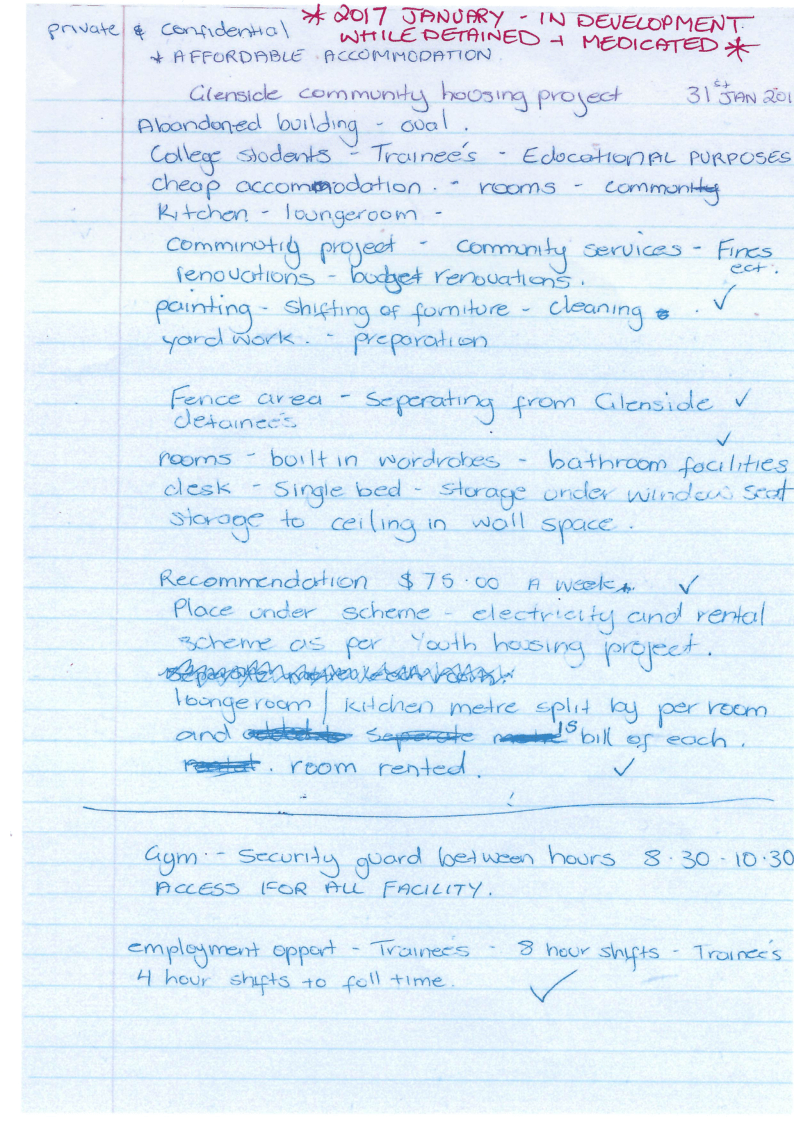 private & confidential
* 2017 JANUARY - IN DEVELOPMENT
WHILE DETAINED + MEDICATED *
* AFFORDABLE ACCOMMODATION
Glenside community housing project 31st JAN 201
Abandoned building - oval.
College students - Trainee's - EDUCATIONAL PURPOSES
cheap accommodation. - rooms - community
Kitchen - loungeroom -
comminutiy project - community services - Fines
ect.
renovations - budget renovations.
painting - shifting of furniture - cleaning . ✓
yard work. - preparation
Fence area - Seperating from Glenside ✓
detainee's
✓
rooms - built in wordrobes - bathroom facilities
desk - Single bed - storage under window seat
storage to ceiling in wall space.
Recommendation $75.00 A week. ✓
Place under scheme - electricity and rental
scheme as per Youth housing project.
loungeroom / kitchen metre split by per room
and is bill of each.
. room rented. ✓
Gym - Security guard between hours 8.30 - 10.30
ACCESS FOR ALL FACILITY.
employment opport - Trainee's - 8 hour shifts - Trainee's
4 hour shifts to full time. ✓